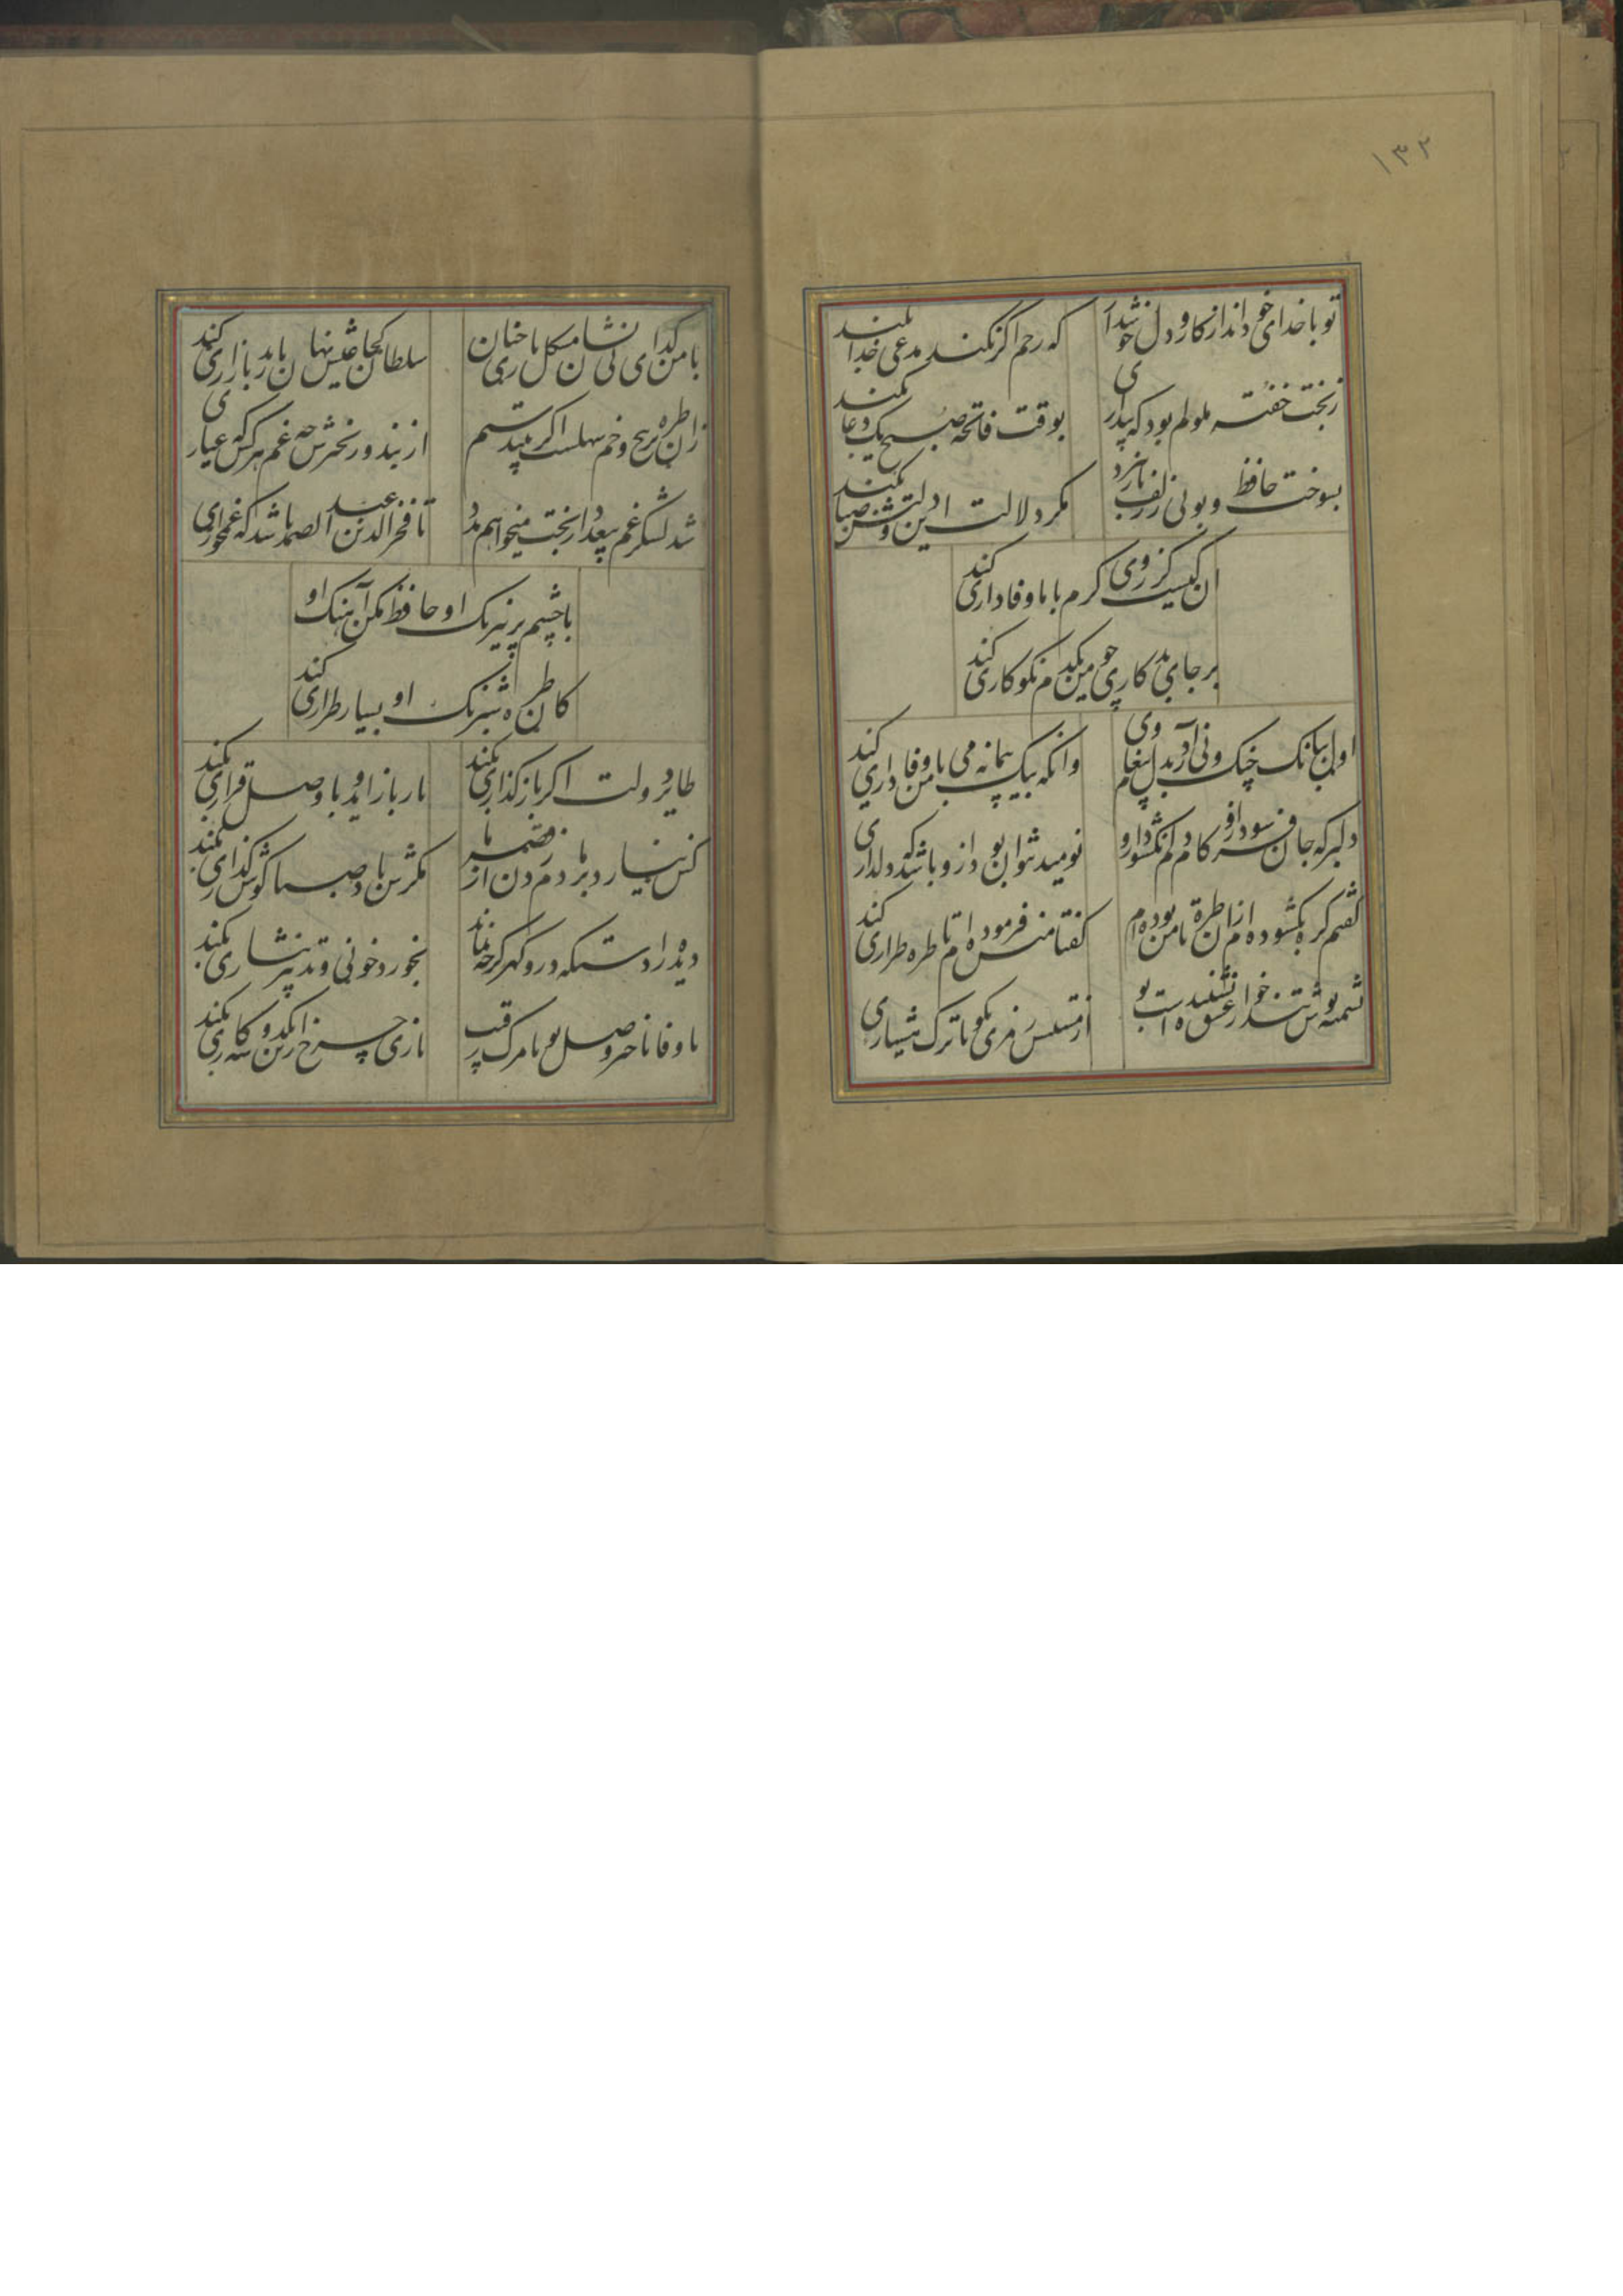 ۱۳۲
تو با خدای خود انداز کار و دل خوشدار
که رحم اگر نکند مدعی خدا بکند
ز بخت خفته ملولم بود که بیداری
بوقت فاتحه صبح یک دعا بکند
بسوخت حافظ و بوئی ز زلف یار نبرد
مکر دلالت این دولتش صبا بکند
ان کیست کز روی کرم با ما وفاداری کند
بر جای بد کاری چو من یکدم نکو کاری کند
اول ببانک چنک و نی آرد بدل پیغام وی
وانکه بیک پیمانه می با من وفاداری کند
دلبر که جان فرسود ازو کام دلم نکشود ازو
نومید نتوان بود ازو باشد که دلداری کند
کفتم کره نکشوده ام زان طره تا من بوده ام
کفتا منش فرموده ام تا طره طراری کند
پشمینه پوش تند خو از عشق نشنیدست بو
از مستیش رمزی بکو تا ترک هشیاری
با من کدای بی نشان مشکل بود یاری چنان
سلطان کجا عیش نهان با رند بازاری کند
زان طره پر پیچ و خم سهلست اکر بینم ستم
از بند و زنجیرش چه غم هر کس که عیاری
شد لشکر غم بیعدد از بخت میخواهم مدد
تا فخر الدین عبد الصمد باشد که غمخواری
با چشم پر نیرنک او حافظ مکن آهنک او
کان طره شبرنک او بسیار طراری کند
طایر دولت اکر باز کذاری بکند
یار باز اید و با وصل قراری بکند
کس نیارد بر او دم زدن از قصه ما
مکرش باد صبا کوش کذاری بکند
دیده را دستکه در و کهر کرچه نماند
بخورد خونی و تدبیر نثاری بکند
یا وفا یا خبر وصل تو یا مرک رقیب
بازی چرخ ازین یکدو سه کاری بکند